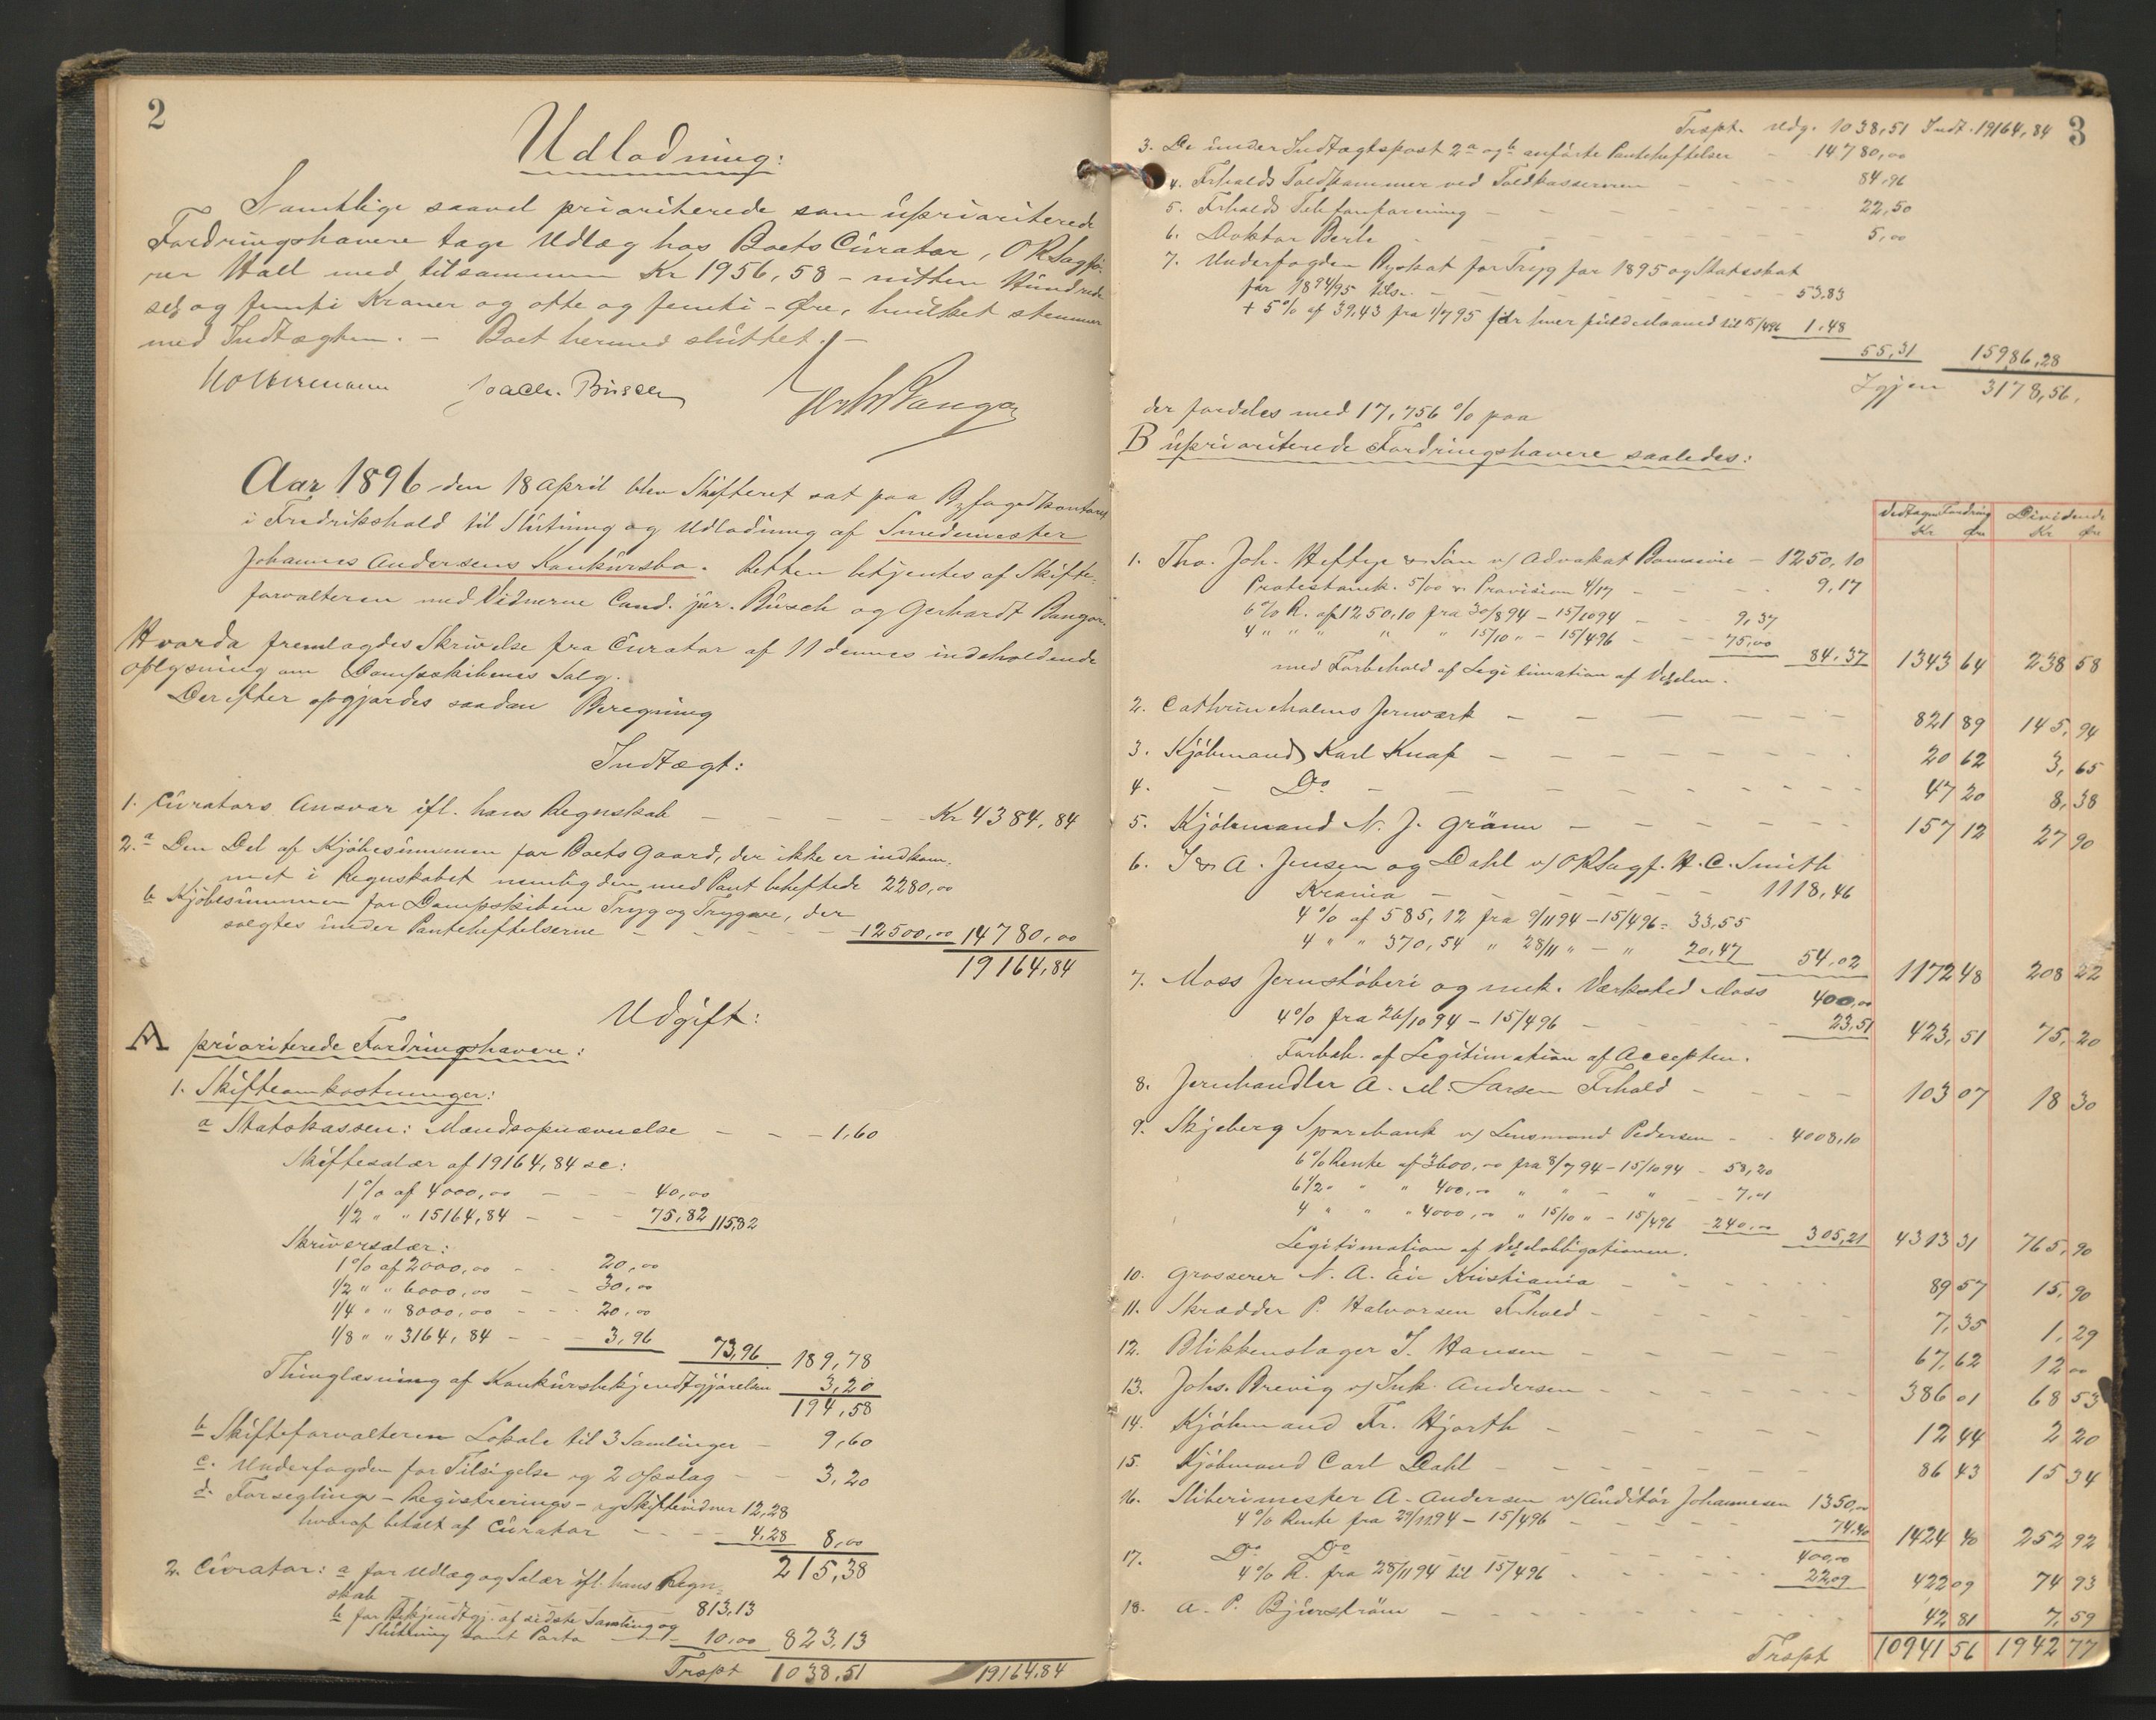 2
Udlodning:
Samtlige saavel prioriterede som uprioriterede
Fordringshavere tage Udlæg hos Boets Curator, ORSagfø-
rer Hall med tilsammen Kr 1956,58 - nitten Hundrede
sex og femti Kroner og otte og femti - Øre, hvilket stemmer
med Indtægten. - Boet hermed sluttet. -
Aar 1896 den 18 April blev Skifteret sat paa Byfogedkontoret
i Fredrikshald til Slutning og Udlodning af Smedemester
Johannes Andersens Konkursbo. Retten betjentes af Skifte-
forvalteren med Vidnerne Cand. jur. Busch og Gerhardt Bangor.
Hvorda fremlagdes Skrivelse fra Curator af 11 dennes indeholdende
Oplysning om Dampskibenes Salg.
Derefter opgjordes saadan Beregning
Indtægt:
1. Curators Ansvar ifl. hans Regnskab - - - - - Kr 4384,84
2.a Den Del af Kjøbesummen for Boets Gaard, der ikke er indkom-
met i Regnskabet nemlig den med Pant beheftede 2280,00
b Kjøbesummen for Dampskibene Tryg og Trygve, der
solgtes under Panteheftelserne - - - - 12500,00 14780,00
19164,84
Udgift:
A prioriterede Fordringshavere:
1. Skifteomkostninger:
a Statskassen: Mandsopnævnelse - - - 1,60
Skiftesalær af 19164,84 sc:
1% af 4000,00 - - - 40,00
1/2 " " 15164,84 - - - 75,82 115,82
Skriversalær:
1% af 2000,00 - - 20,00
1/2 " " 6000,00 - - 30,00
1/4 " " 8000,00 - - 20,00
1/8 " " 3164,84 - - - 3,96 73,96 189,78
Thinglæsning af Konkursbekjendtgjørelsen 3,20
194,58
b Skifteforvalteren Lokale til 3 Samlinger - 9,60
c. Underfogden for Tilsigelse og 2 Opslag - - 3,20
d. Forseglings - Registrerings - og Skiftevidner 12,28
hvoraf betalt af Curator - - - - 4,28 8,00
215,38
2. Curator: a for Udlæg og Salær ifl. hans Regn-
skab 813,13
b for Bekjendtgj. af sidste Samling og
Slutning samt Porto - - - 10,00 823,13
Trspt 1038,51 19164,84
3
Trspt. Udg. 1038,51 Indt. 19164,84
3. De under Indtægtspost 2a og b anførte Panteheftelser - 14780,00
4. Frhalds Toldkammer ved Toldkassereren - - - - 84,96
5. Frhalds Telefonforening - - - - - - 22,50
6. Doktor Berle - - - - - - - 5,00
7. Underfogden Byskat for Tryg for 1895 og Statsskat
for 1894/95 tils. - - - - - - - 53,83
+ 5% af 39,43 fra 1/7 95 for hver fulde Maaned til 15/4 96 1,48
55,31 15986,28
Igjen 3178,56.
der fordeles med 17,756% paa
B uprioriterede Fordringshavere saaledes:
Vedtagen Fordring Dividende
Kr Øre Kr Øre
1. Tho. Joh. Heftye & Søn v/ Advokat - 1250,10
Protestomk. 5/00 & Provision 4/17 - - - 9,17
6% R. af 1250,10 fra 30/8 94 - 15/10 94 - - 9,37
4 " " " " 15/10 " - 15/4 96 - - 75,00 84,37 1343 64 238 58
med Forbehold af Legitimation af Vexelen.
2. Cathrineholms Jernværk - - - - - - 821 89 145,94
3. Kjøbmand Karl Knap - - - - - - 20 62 3,65
4. - Do - - - - - - 47 20 8,38
5. Kjøbmand N. J. Grønn - - - - - - 157 12 27 90
6. I & A. Jensen og Dahl v/ ORSagf. H. C. Smith
Krania - - - - - - 1118,46
4% af 585,12 fra 9/11 94 - 15/4 96 = 33,55
4 " " 370,54 " 28/11 " - " 20,47 54,02 1172 48 208 22
7. Moss Jernstøberi og mek. Værksted Moss 400,00
4% fra 26/10 94 - 15/4 96 - - - - 23,51 423,51 75,20
Forbeh. af Legitimation af Accepten.
8. Jernhandler A. M. Larsen Frhald - - - - 103 07 18 30
9. Skjeberg Sparebank v/ Lensmand Pedersen - - 4008,10
6% Rente af 3600,00 fra 8/7 94 - 15/10 94 - 58,20
6 1/2 " " 400,00 " " - " - - 7,01
4 " " " 4000,00 " 15/10 " - 15/4 96 - 240,00 305,21 4313 31 765,90
Legitimation af Vexelobligationen.
10. Grosserer N. A. Eie Kristiania - - - - 89 57 15,90
11. Skrædder P. Halvorsen Frhald - - - - - 7,35 1,29
12. Blikkenslager I. Hansen - - - - - 67,62 12 00
13. Johs. Brevig v/ Ink. Andersen - - - - - 386 01 68 53
14. Kjøbmand Fr. Hjorth - - - - - 12 44 2 20
15. Kjøbmand Carl Dahl - - - - - 86 43 15 34
16. Sliberimester A. Andersen v/ Auditør Johannesen 1350,00
4% Rente fra 29/11 94 - 15/4 96 - - - - - 74,40 1424 40 252 92
17. Do Do - - - - - 400,00
4% R. fra 28/11 94 til 15/4 96 - - - - 22,09 422 09 74 93
18. A. P. Bjurstrøm - - - - - - 42,81 7,59
Trspt 10941 56 1942 77